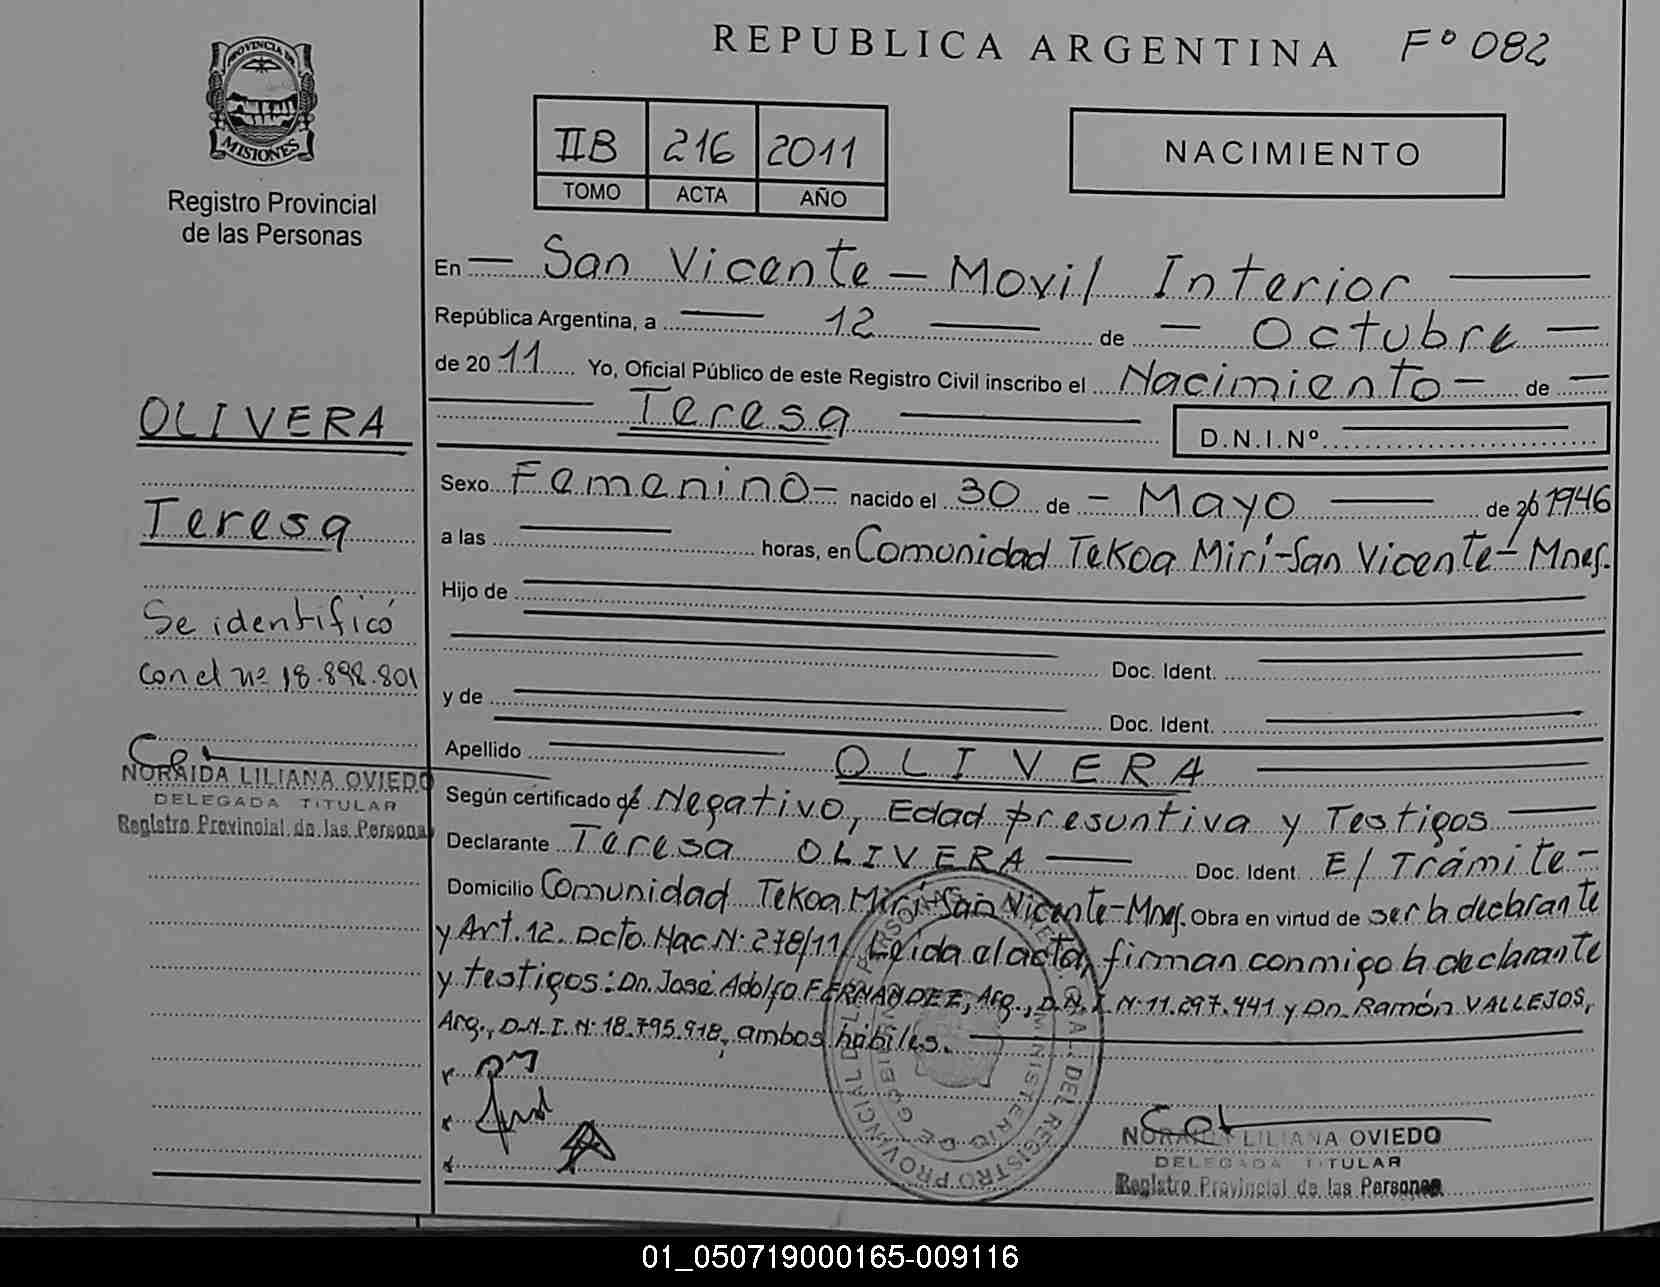 REPUBLICA ARGENTINA Fº 082
PROVINCIA DE
MISIONES
Registro Provincial
de las Personas
IIB 216 2011
TOMO ACTA AÑO
NACIMIENTO
En San Vicente - Movil Interior
República Argentina, a 12 de Octubre
de 2011 Yo, Oficial Público de este Registro Civil inscribo el Nacimiento - de
Teresa D.N.I.Nº
OLIVERA
Teresa
Se identificó
con el nº 18.898.801
NORAIDA LILIANA OVIEDO
DELEGADA TITULAR
Registro Provincial de las Personas
Sexo Femenino - nacido el 30 de - Mayo de 20 1946
a las horas, en Comunidad Tekoa Mirí-San Vicente-Mnes.
Hijo de
Doc. Ident.
y de
Doc. Ident.
Apellido OLIVERA
Según certificado de Negativo, Edad presuntiva y Testigos
Declarante Teresa OLIVERA Doc. Ident. E/ Trámite-
Domicilio Comunidad Tekoa Mirí-San Vicente-Mnes. Obra en virtud de ser la declarante
y Art. 12. Dcto. Nac. N: 278/11/ Leida el acta, firman conmigo la declarante
y testigos: Dn. José Adolfo FERNANDEZ, Arg., D.N.I. N: 11.297.441 y Dn. Ramón VALLEJOS,
Arg., D.N.I. N: 18.795.918, ambos hábiles.
NORAIDA LILIANA OVIEDO
DELEGADA TITULAR
Registro Provincial de las Personas
01_050719000165-009116